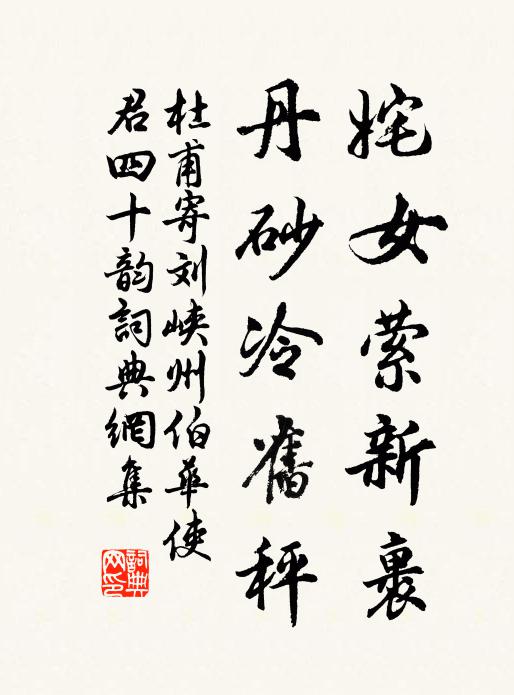 姹女萦新裹
丹砂冷舊秤
杜甫寄刘峡州伯華使
君四十韵詞典網集
詞典
网印